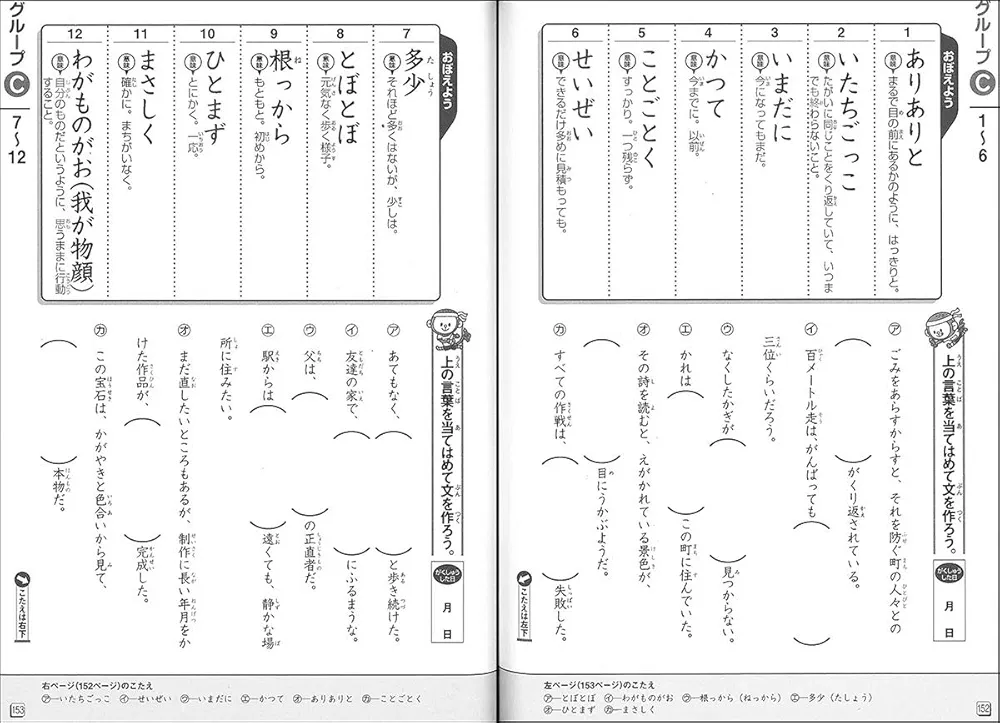 グループC
1〜6
おぼえよう
1
ありありと
意味 まるで目の前にあるかのように、はっきりと。
2
いたちごっこ
意味 たがいに同じことをくり返していて、いつま
でも終わらないこと。
3
いまだに
意味 今になってもまだ。
4
かつて
意味 今までに。以前。
5
ことごとく
意味 すっかり。一つ残らず。
6
せいぜい
意味 できるだけ多めに見積もっても。
上の言葉を当てはめて文を作ろう。
がくしゅうした日
月 日
ア ごみをあらすからすと、それを防ぐ町の人々との
( )がくり返されている。
イ 百メートル走は、がんばっても( )
三位くらいだろう。
ウ なくしたかぎが( )見つからない。
エ かれは( )この町に住んでいた。
オ その詩を読むと、えがかれている景色が、
( )目にうかぶようだ。
カ すべての作戦は、( )失敗した。
こたえは左下
左ページ(153ページ)のこたえ
ア―とぼとぼ イ―わがものがお ウ―根っから(ねっから) エ―多少(たしょう)
オ―ひとまず カ―まさしく
152
グループC
7〜12
おぼえよう
7
多少
意味 それほど多くはないが、少しは。
8
とぼとぼ
意味 元気なく歩く様子。
9
根っから
意味 もともと。初めから。
10
ひとまず
意味 とにかく。一応。
11
まさしく
意味 確かに。まちがいなく。
12
わがものがお(我が物顔)
意味 自分のものだというように、思うままに行動
すること。
上の言葉を当てはめて文を作ろう。
がくしゅうした日
月 日
ア あてもなく、( )と歩き続けた。
イ 友達の家で、( )にふるまうな。
ウ 父は、( )の正直者だ。
エ 駅からは( )遠くても、静かな場
所に住みたい。
オ まだ直したいところもあるが、制作に長い年月をか
けた作品が、( )完成した。
カ この宝石は、かがやきと色合いから見て、
( )本物だ。
こたえは右下
右ページ(152ページ)のこたえ
ア―いたちごっこ イ―せいぜい ウ―いまだに エ―かつて オ―ありありと カ―ことごとく
153